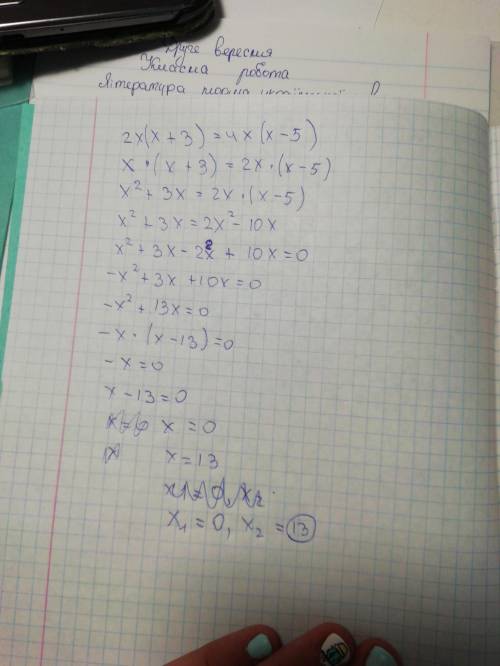 друге вересня
Класна робота
Література
2x(x+3)=4x(x-5)
x·(x+3)=2x·(x-5)
x²+3x=2x·(x-5)
x²+3x=2x²-10x
x²+3x-2x²+10x=0
-x²+3x+10x=0
-x²+13x=0
-x·(x-13)=0
-x=0
x-13=0
x=0
x=13
x₁=0, x₂=13